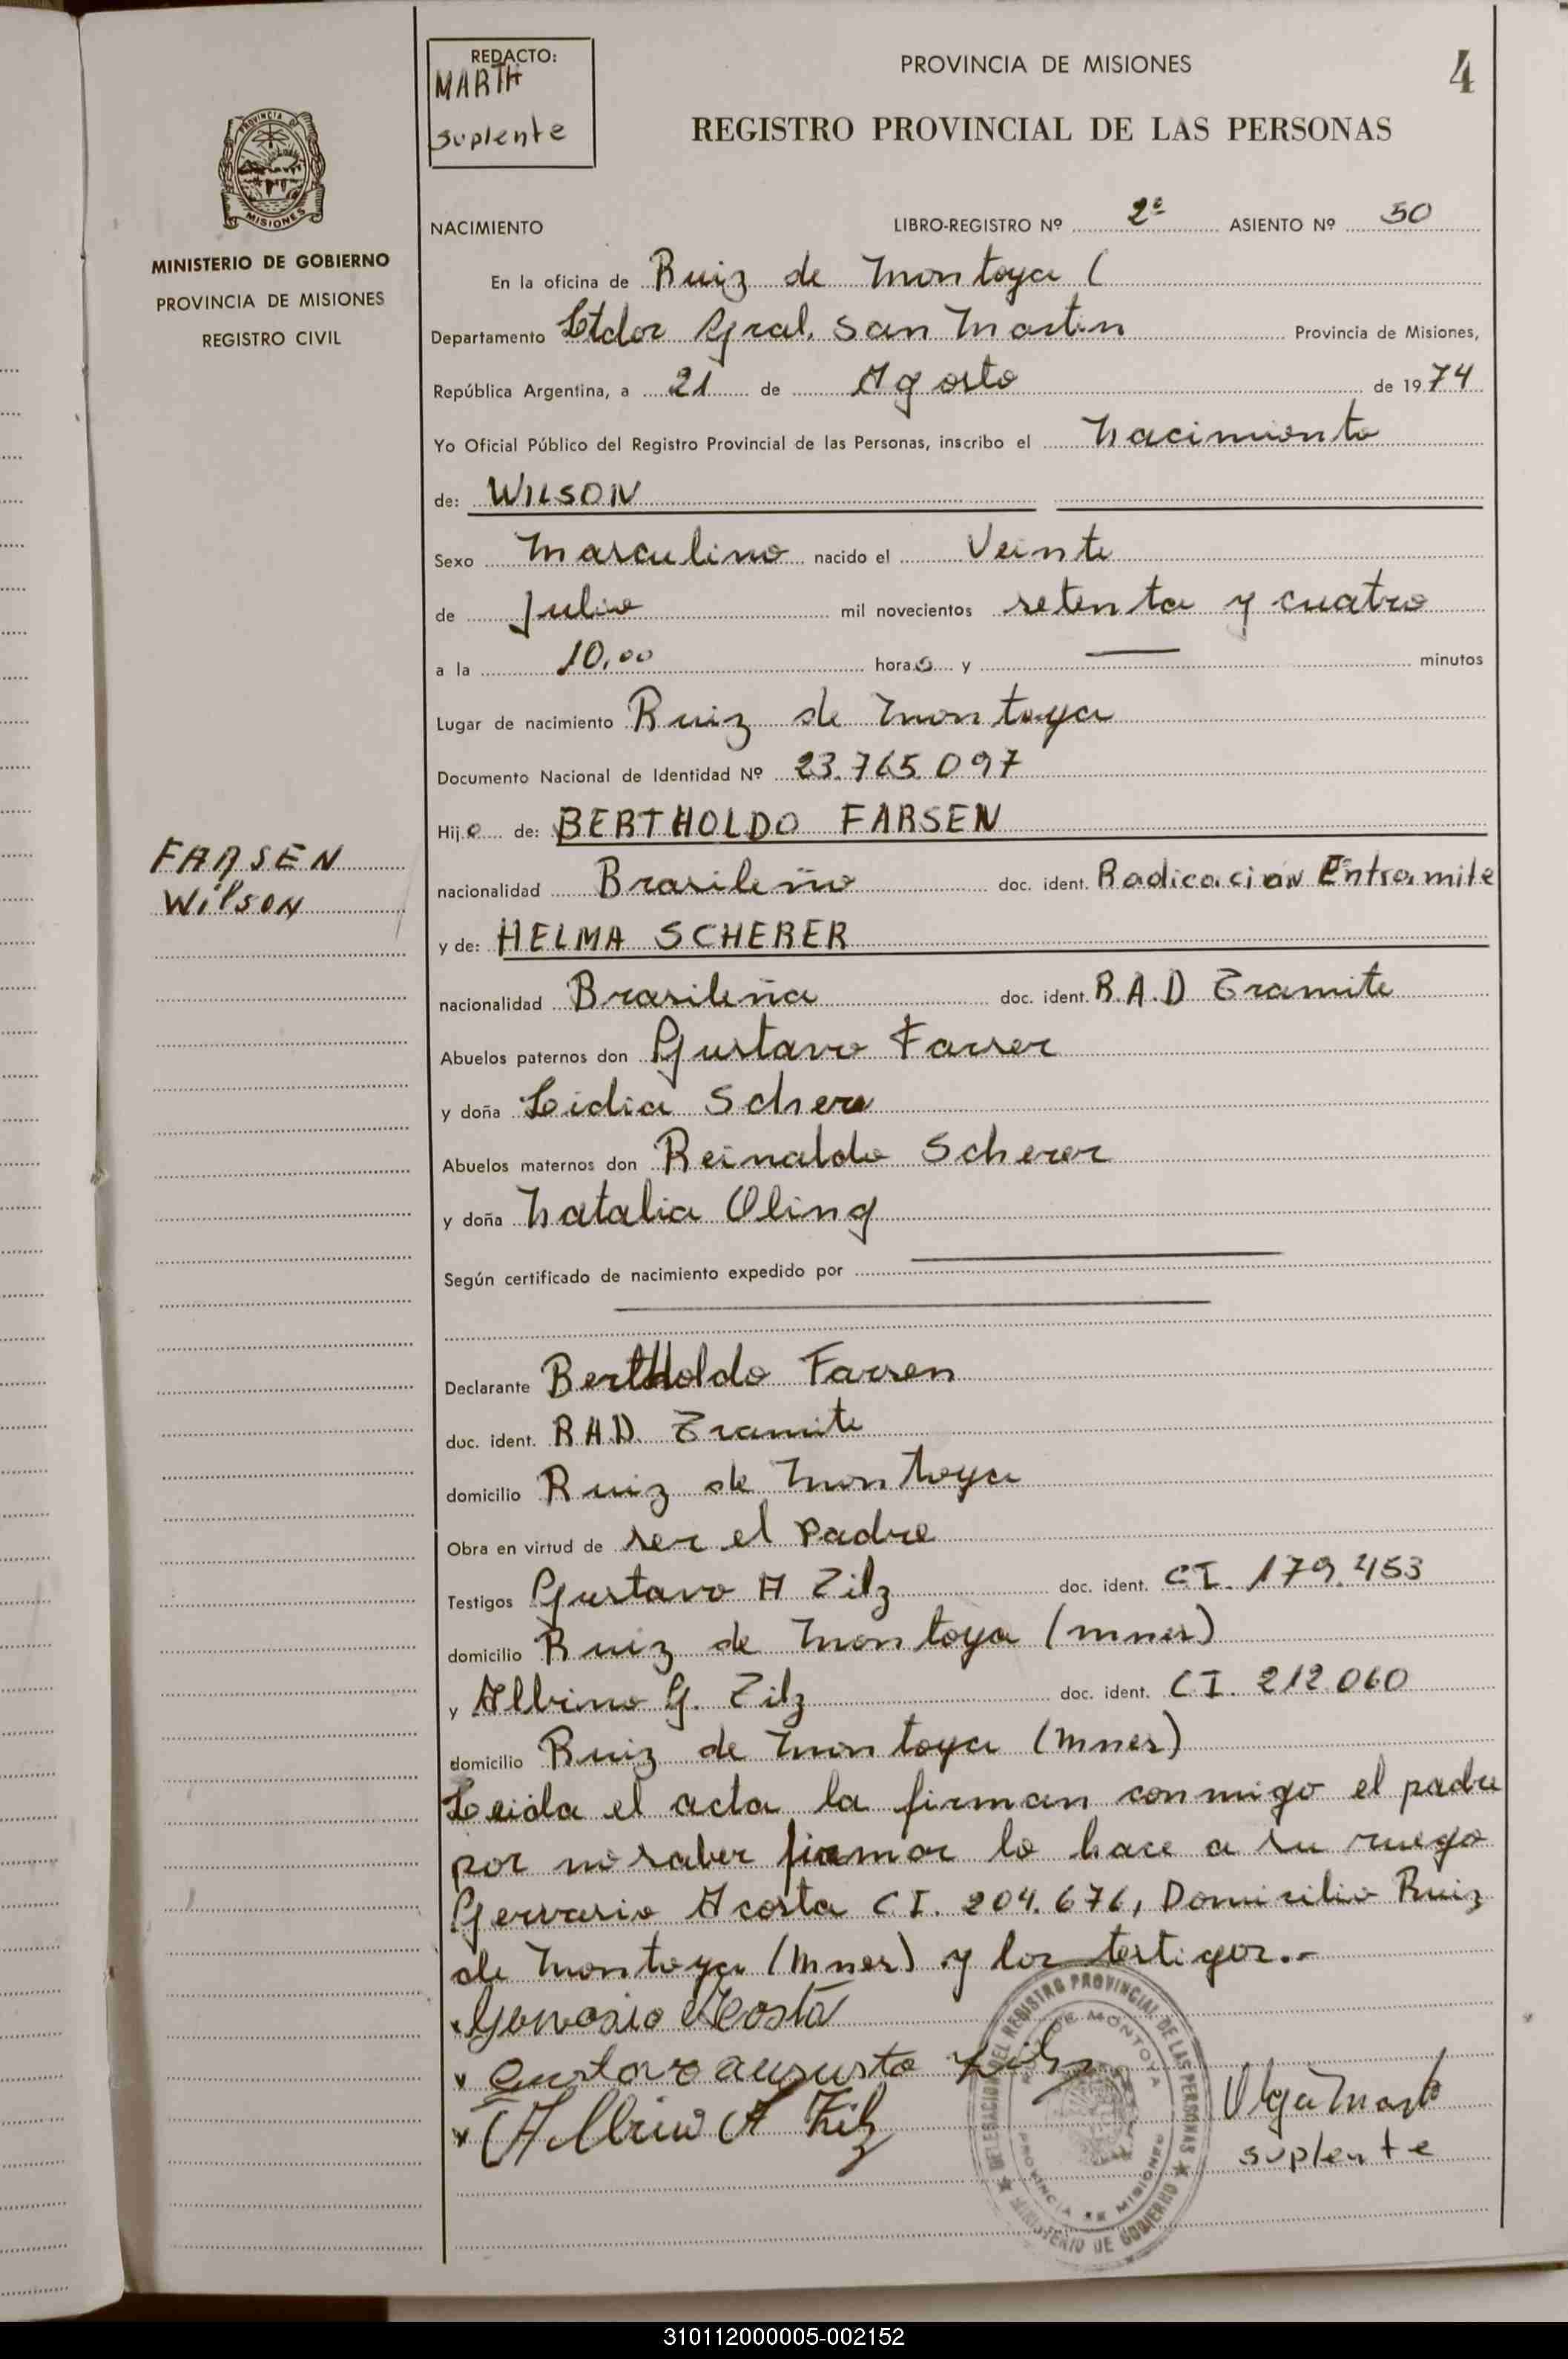 REDACTO:
MARTH
suplente
PROVINCIA DE MISIONES
4
REGISTRO PROVINCIAL DE LAS PERSONAS
PROVINCIA DE
MISIONES
MINISTERIO DE GOBIERNO
PROVINCIA DE MISIONES
REGISTRO CIVIL
NACIMIENTO LIBRO-REGISTRO Nº 2º ASIENTO Nº 50
En la oficina de Ruiz de Montoya (
Departamento Ltdor Gral. San Martin Provincia de Misiones,
República Argentina, a 21 de Agosto de 1974
Yo Oficial Público del Registro Provincial de las Personas, inscribo el Nacimiento
de: WILSON
Sexo Masculino nacido el Veinte
de Julio mil novecientos setenta y cuatro
a la 10,00 horas y — minutos
Lugar de nacimiento Ruiz de Montoya
Documento Nacional de Identidad Nº 23.765.097
Hijo de: BERTHOLDO FARSEN
FARSEN
Wilson
nacionalidad Brasileño doc. ident. Radicación Entramite
y de: HELMA SCHERER
nacionalidad Brasileña doc. ident. R.A.D Tramite
Abuelos paternos don Gustavo Farser
y doña Lidia Scher
Abuelos maternos don Reinaldo Scherer
y doña Natalia Oling
Según certificado de nacimiento expedido por
Declarante BertHoldo Farsen
doc. ident. RAD. Tramite
domicilio Ruiz de Montoya
Obra en virtud de ser el Padre
Testigos Gustavo A Zilz doc. ident. CI. 179.453
domicilio Ruiz de Montoya (Mnes)
y Albino G. Zilz doc. ident. CI. 212.060
domicilio Ruiz de Montoya (Mnes)
Leida el acta la firman conmigo el padre
por no saber firmar lo hace a su ruego
Gervasio Acosta CI. 204.676, Domicilio Ruiz
de Montoya (Mnes) y los testigos.-
Gervasio Acosta
Gustavo augusto Zilz
Albino A Zilz
DELEGACION DEL REGISTRO PROVINCIAL DE LAS PERSONAS
DE MONTOYA
PROVINCIA DE MISIONES
MINISTERIO DE GOBIERNO
Olga Marth
suplente
310112000005-002152